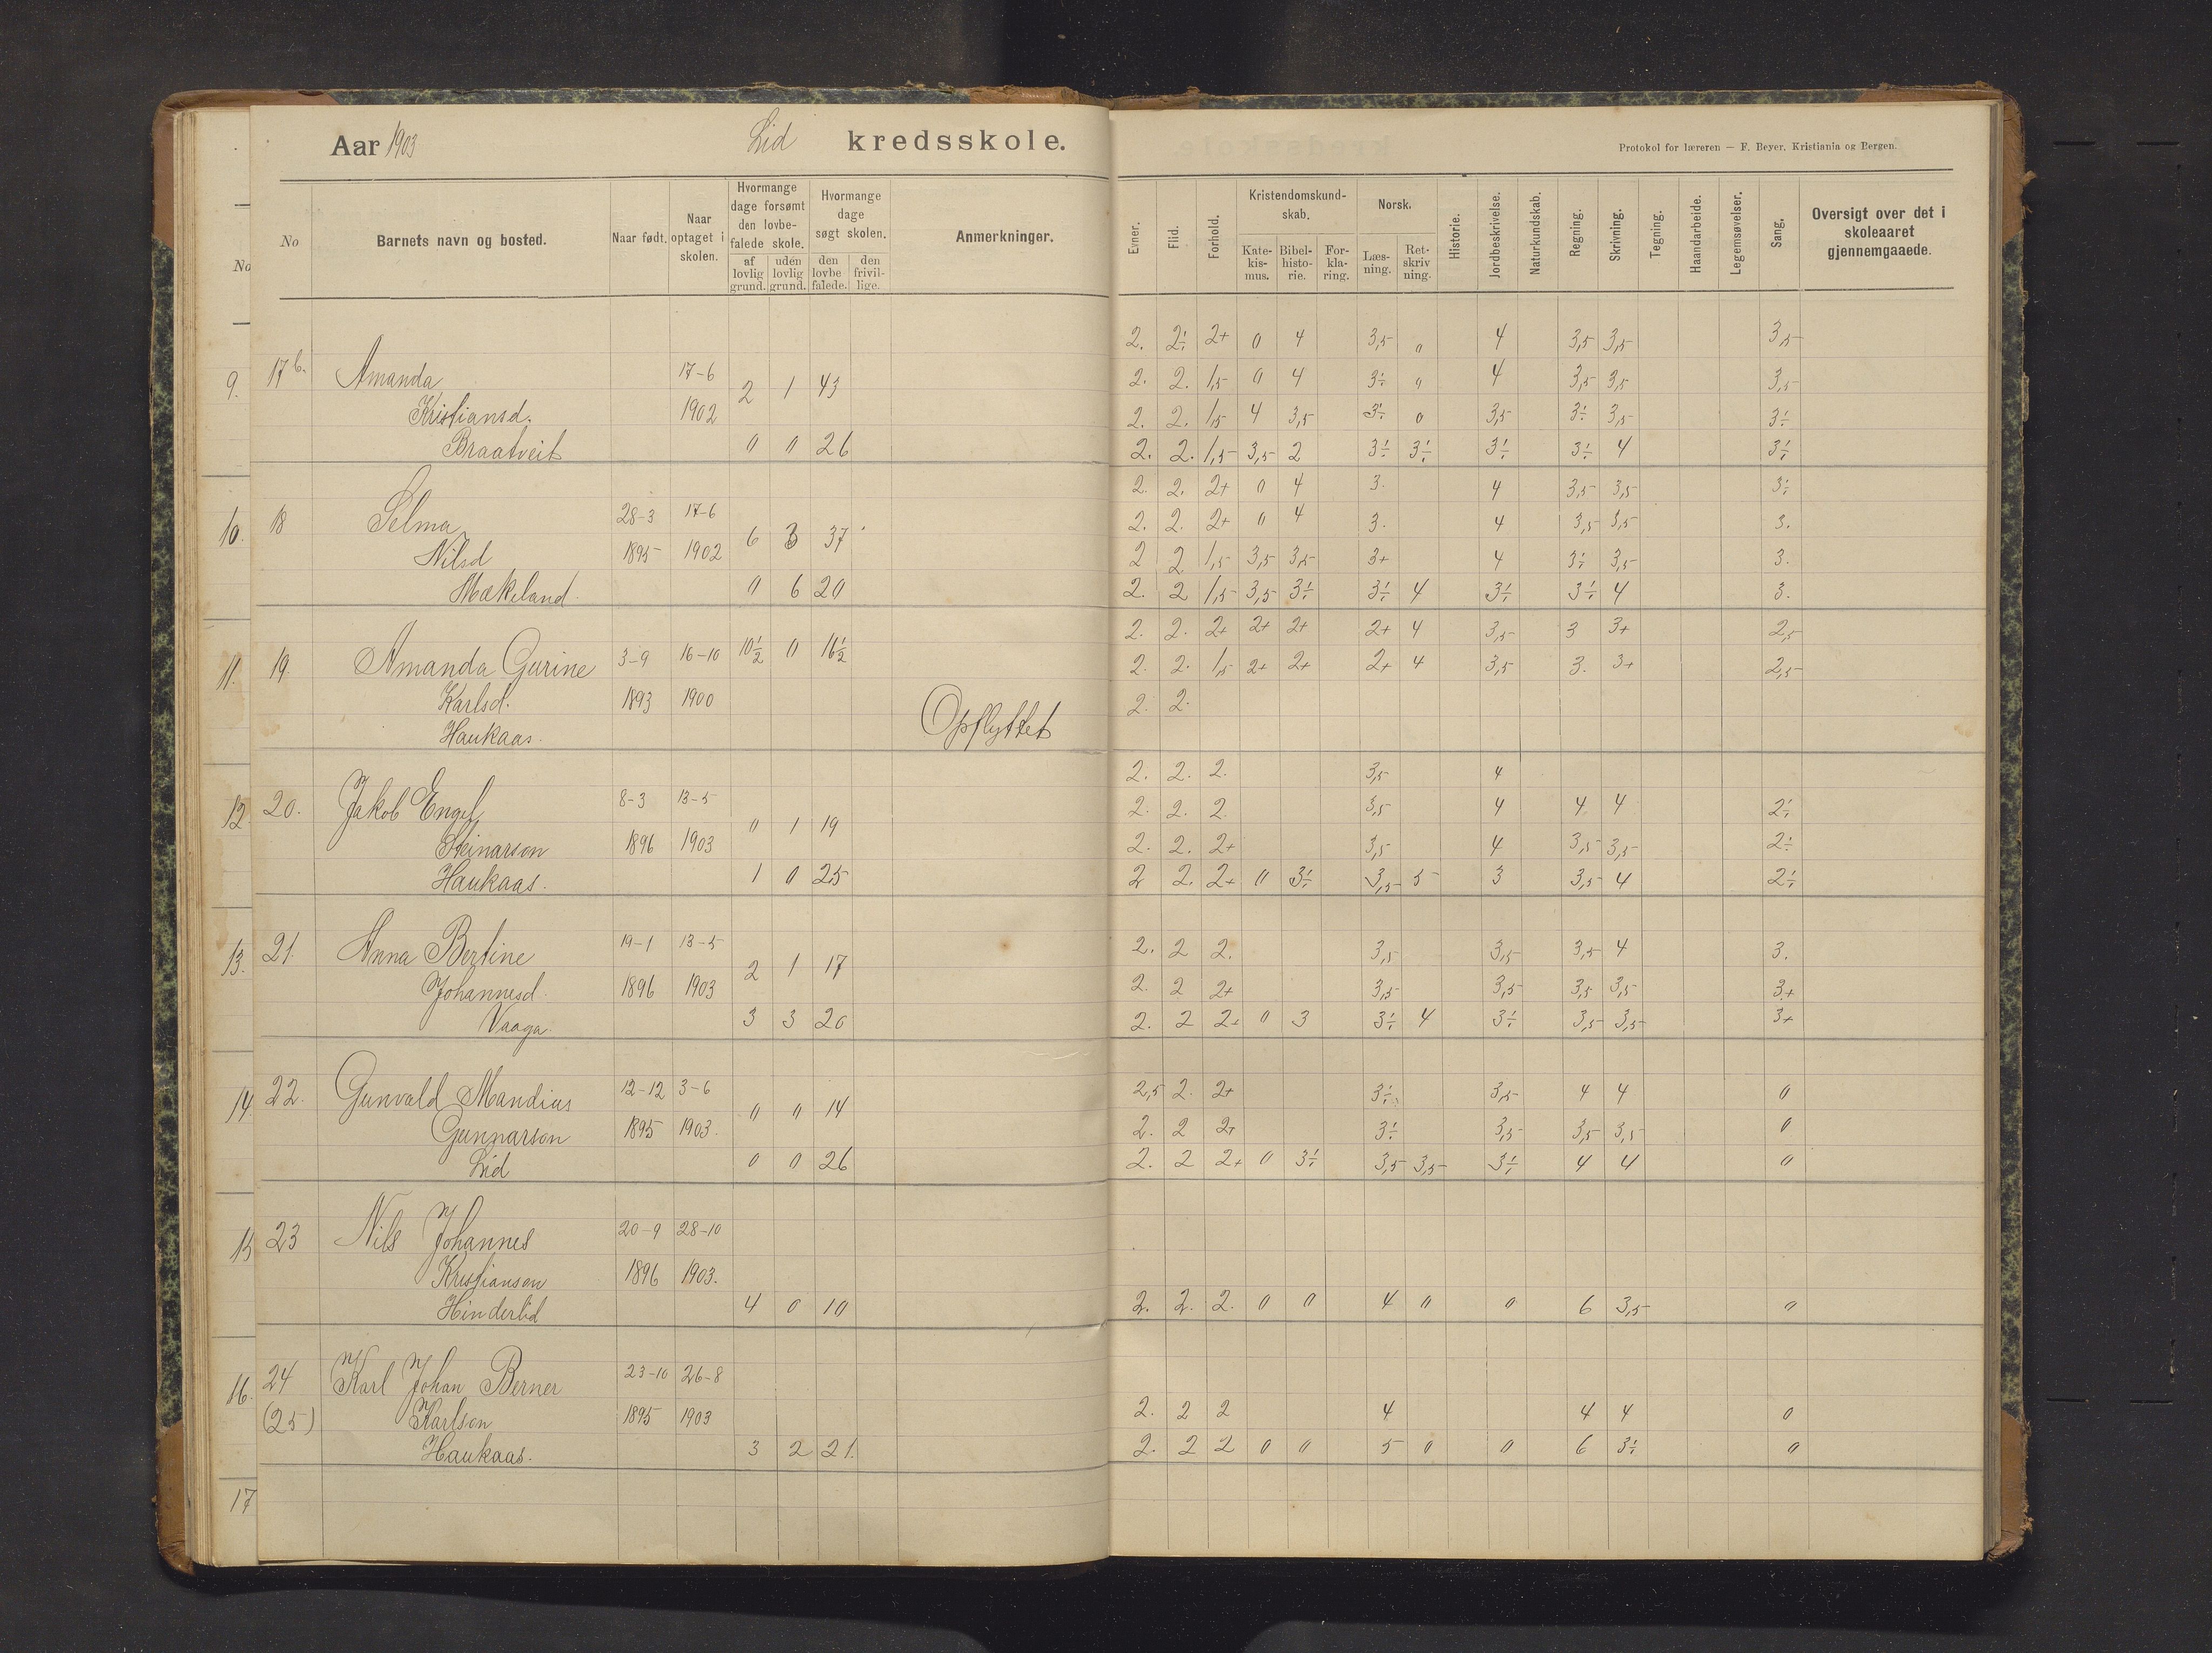 Aar 1903 Lid kredsskole.
Protokol for læreren — F. Beyer, Kristiania og Bergen.
No Barnets navn og bosted. Naar født. Naar optaget i skolen. Hvormange dage forsømt den lovbefalede skole. af lovlig grund. uden lovlig grund. Hvormange dage søgt skolen. den lovbe falede. den frivillige. Anmerkninger.
Evner. Flid. Forhold. Kristendomskundskab. Katekismus. Bibelhistorie. Forklaring. Norsk. Læsning. Retskriv ning. Historie. Jordbeskrivelse. Naturkundskab. Regning. Skrivning. Tegning. Haandarbeide. Legemsøvelser. Sang. Oversigt over det i skoleaaret gjennemgaaede.
No
2. 2÷ 2+ 0 4 3,5 0 4 3,5 3,5 3,5
9. 17b. Amanda 17-6 2 1 43 2. 2. 1,5 0 4 3÷ 0 4 3,5 3,5 3,5
Kristiansd. 1902 2. 2. 1,5 4 3,5 3÷ 0 3,5 3÷ 3,5 3÷
Braatveit 0 0 26 2. 2. 1,5 3,5 2 3÷ 3÷ 3÷ 3÷ 4 3÷
2. 2. 2+ 0 4 3. 4 3,5 3,5 3÷
10. 18 Selma 28-3 17-6 6 3 37 2. 2. 2+ 0 4 3. 4 3,5 3,5 3.
Nilsd 1895 1902 2 2 1,5 3,5 3,5 3+ 4 3÷ 3,5 3.
Mækeland. 0 6 20 2. 2 1,5 3,5 3÷ 3÷ 4 3÷ 3÷ 4 3.
2. 2. 2+ 2+ 2+ 2+ 4 3,5 3 3+ 2,5
11. 19. Amanda Gurine 3-9 16-10 10½ 0 16½ 2. 2. 1,5 2+ 2+ 2+ 4 3,5 3. 3+ 2,5
Karlsd. 1893 1900 2. 2.
Haukaas. Opflyttet
2. 2. 2. 3,5 4
12 20. Jakob Engel 8-3 13-5 0 1 19 2. 2. 2. 3,5 4 4 4 2÷
Steinarson 1896 1903 2. 2. 2+ 3,5 4 3,5 3,5 2÷
Haukaas. 1 0 25 2 2. 2+ 0 3÷ 3,5 5 3 3,5 4 2÷
13. 21. Anna Bertine 19-1 13-5 2 1 17 2. 2 2. 3,5 3,5 3,5 4 3.
Johannesd. 1896 1903 2. 2 2+ 3,5 3,5 3,5 3,5 3+
Vaaga. 3 3 20 2. 2 2+ 0 3 3÷ 4 3÷ 3,5 3,5 3+
14. 22. Gunvald Mandius 12-12 3-6 0 0 14 2,5 2. 2+ 3÷ 3,5 4 4 0
Gunnarson 1895 1903. 2. 2 2+ 3÷ 3,5 3,5 3,5 0
Lid 0 0 26 2. 2 2+ 0 3÷ 3,5 3,5 3÷ 4 4 0
15 23 Nils Johannes 20-9 28-10
Kristiansen 1896 1903.
Hinderlid 4 0 10 2. 2. 2. 0 0 4 0 0 6 3,5 0
16. 24 Karl Johan Berner 23-10 26-8
(25) Karlson 1895 1903 2. 2 2 4 4 4 0
Haukaas. 3 2 21. 2. 2 2 0 0 5 0 0 6 3÷ 0
17